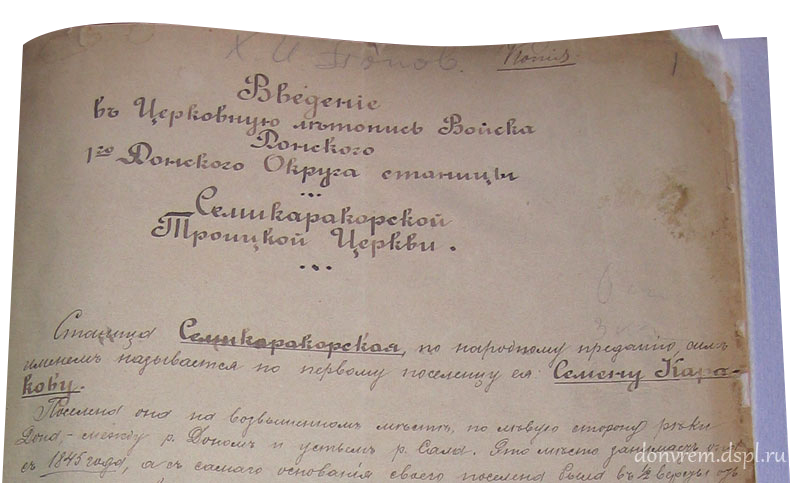 Х. И. Попов.
Копия
1
Введеніе
въ Церковную лѣтопись Войска
Донского
1го Донского Округа станицы
Семикаракорской
Троицкой Церкви.
Станица Семикаракорская, по народному преданію, симъ
именемъ называется по первому поселенцу ея Семену Кара-
кову.
Поселена она на возвышенномъ мѣстѣ, по лѣвую сторону рѣки
Дона, – между р. Дономъ и устьемъ р. Сала. Это мѣсто занимаетъ
съ 1845 года, а съ самаго основанія своего поселена была въ ½ верстѣ отъ
donvrem.dspl.ru